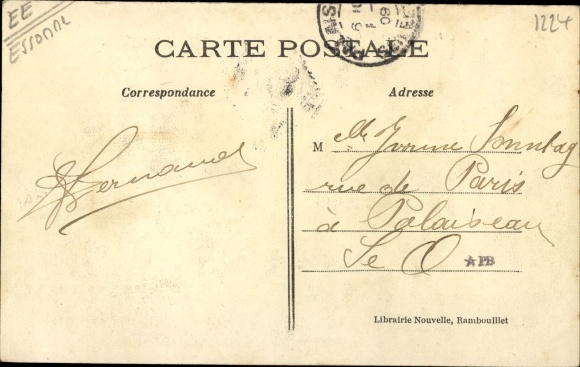 EE
ESSONNE
1224
CARTE POSTALE
Correspondance
Adresse
Fernand
M elle Yvonne Sonntag
rue de Paris
à Palaiseau
Se O
PB
Librairie Nouvelle, Rambouillet